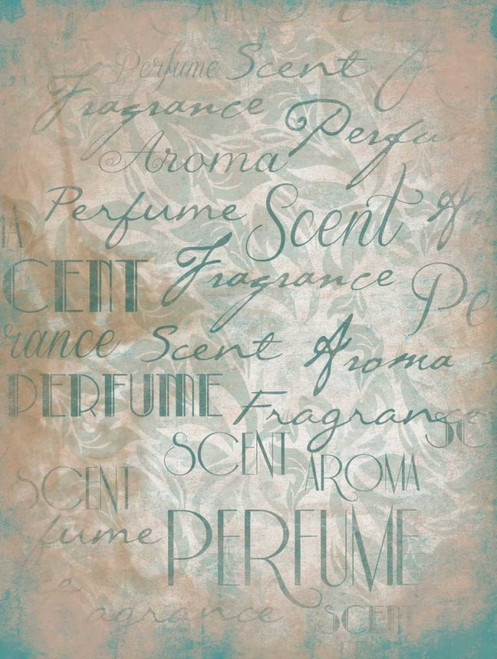 Perfume Scent
Fragrance
Perfu
Aroma
Perfume Scent
CENT Fragrance
Pe
rance Scent Aroma
PERFUME Fragran
SC
SCENT AROMA
SCENT
fume PERFUME
agrance SCENT